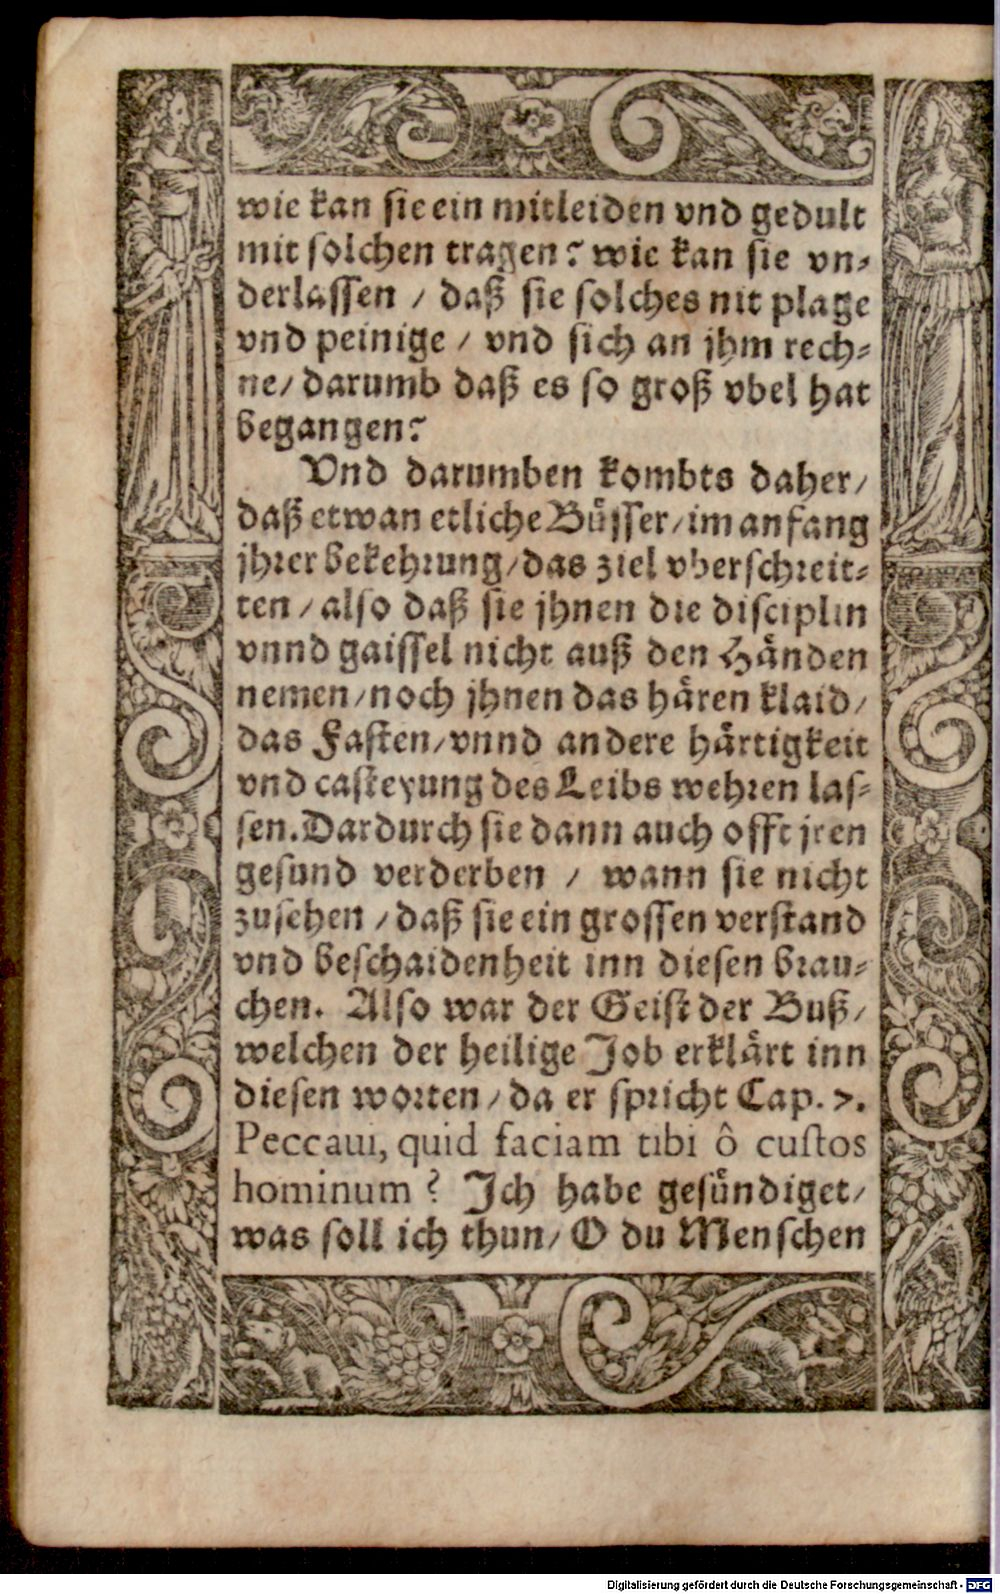 wie kan sie ein mitleiden vnd gedult
mit solchen tragen? wie kan sie vn-
derlassen / daß sie solches nit plage
vnd peinige / vnd sich an jhm rech-
ne / darumb daß es so groß vbel hat
begangen?
Vnd darumben kombts daher /
daß etwan etliche Büsser / im anfang
jhrer bekehrung / das ziel vberschreit-
ten / also daß sie jhnen die disciplin
vnnd gaissel nicht auß den Händen
nemen / noch jhnen das hären klaid /
das Fasten / vnnd andere härtigkeit
vnd casteyung des Leibs wehren las-
sen. Dardurch sie dann auch offt jren
gesund verderben / wann sie nicht
zusehen / daß sie ein grossen verstand
vnd beschaidenheit inn diesen brau-
chen. Also war der Geist der Buß /
welchen der heilige Job erklärt inn
diesen worten / da er spricht Cap. 7.
Peccaui, quid faciam tibi ô custos
hominum? Ich habe gesündiget /
was soll ich thun / O du Menschen
Digitalisierung gefördert durch die Deutsche Forschungsgemeinschaft - DFG